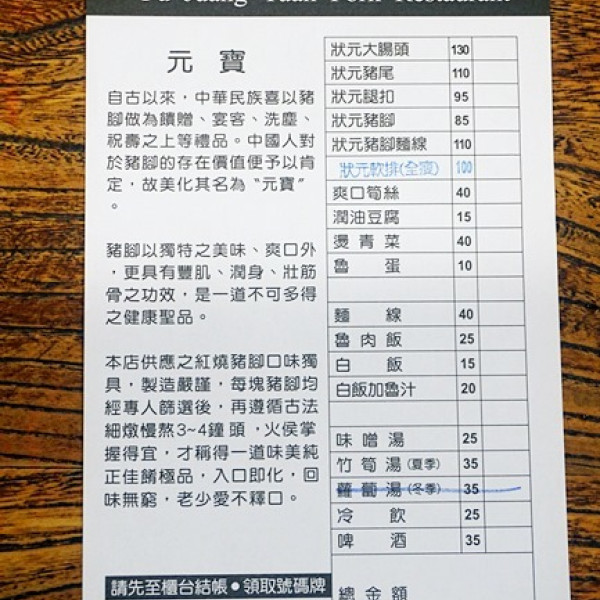 Restaurant
元寶
自古以來，中華民族喜以豬
腳做為饋贈、宴客、洗塵、
祝壽之上等禮品。中國人對
於豬腳的存在價值便予以肯
定，故美化其名為“元寶”
。
豬腳以獨特之美味、爽口外
，更具有豐肌、潤身、壯筋
骨之功效，是一道不可多得
之健康聖品。
本店供應之紅燒豬腳口味獨
具，製造嚴謹，每塊豬腳均
經專人篩選後，再遵循古法
細燉慢熬3~4鐘頭，火侯掌
握得宜，才稱得一道味美純
正佳餚極品，入口即化，回
味無窮，老少愛不釋口。
請先至櫃台結帳●領取號碼牌
狀元大腸頭 130
狀元豬尾 110
狀元腿扣 95
狀元豬腳 85
狀元豬腳麵線 110
狀元軟排(全瘦) 100
爽口筍絲 40
潤油豆腐 15
燙青菜 40
魯蛋 10
麵線 40
魯肉飯 25
白飯 15
白飯加魯汁 20
味噌湯 25
竹筍湯(夏季) 35
蘿蔔湯(冬季) 35
冷飲 25
啤酒 35
總金額